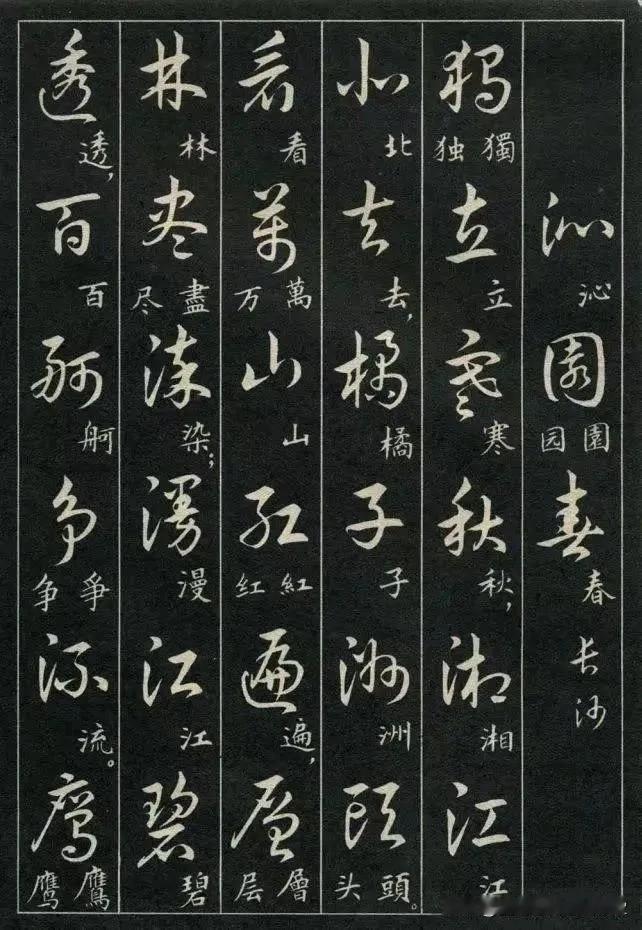 沁 沁 園 園园 春 春 长沙
獨 獨独 立 立 寒 寒 秋 秋， 湘 湘 江 江
北 北 去 去， 橘 橘 子 子 洲 洲 頭 頭头。
看 看 萬 萬万 山 山 紅 紅红 遍 遍， 層 層层
林 林 盡 盡尽 染 染； 漫 漫 江 江 碧 碧
透 透， 百 百 舸 舸 爭 爭争 流 流。 鷹 鷹鹰